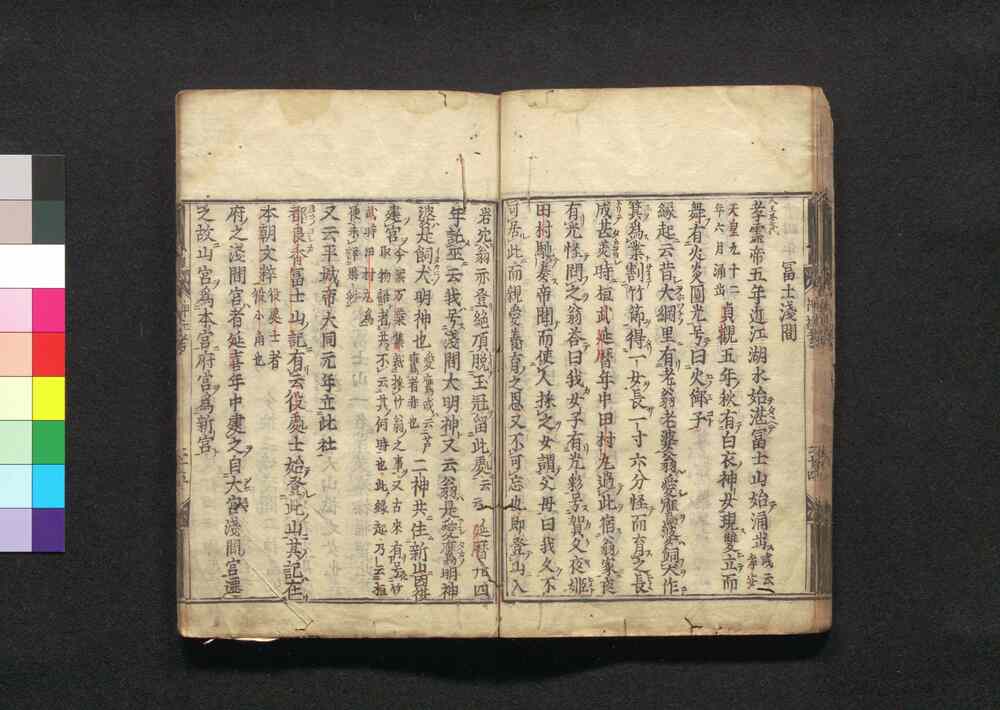 冨士淺間
孝霊帝五年近江湖水始湛富士山始涌出 或云孝安
天皇九十二年六月涌出 貞觀五年秋有白衣神女現雙立而
舞有火炎圓光号曰火御子
縁起云昔大綱里有老翁老婆翁愛鷹婆飼犬作
箕為業割竹節得一女長一寸六分怪而育之長
成甚美時桓武延暦年中田村丸過此宿翁家夜
有光怪問之翁答曰我女子有光彩号賀久夜姫
田村馳奏帝聞而使人採之女謂父母曰我久不
可居此而親愛養育之恩又不可忘也即登山入
岩穴翁亦登絶頂脱玉冠留此處云云 延暦廿四
年託巫云我号淺間大明神又云翁是愛鷹明神
婆是飼犬明神也 愛鷹或云芦鷹者非也 二神共住新山因茲
建宮 今案万葉集載採竹翁之事又古來有号竹
取物語者共不云其何時也此縁起乃云桓
武時田村丸為
使未詳
又云平城帝大同元年立此社
都良香冨士山記有云役處士始登此山其記在
本朝文粹 役處士者役小角也
府之淺間宮者延喜年中建之自大宮淺間宮遷
之故山宮為本宮府宮為新宮